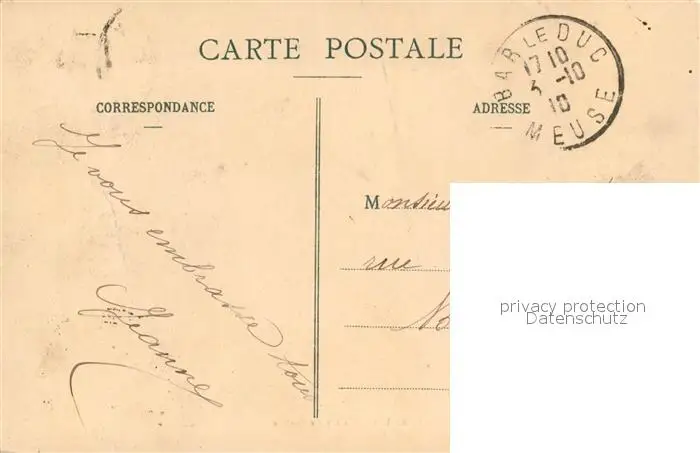 CARTE POSTALE
BAR LE DUC
17 10
5 -10
10
MEUSE
CORRESPONDANCE
ADRESSE
Je vous embrasse tous
Jeanne
Monsieur
rue
privacy protection
Datenschutz